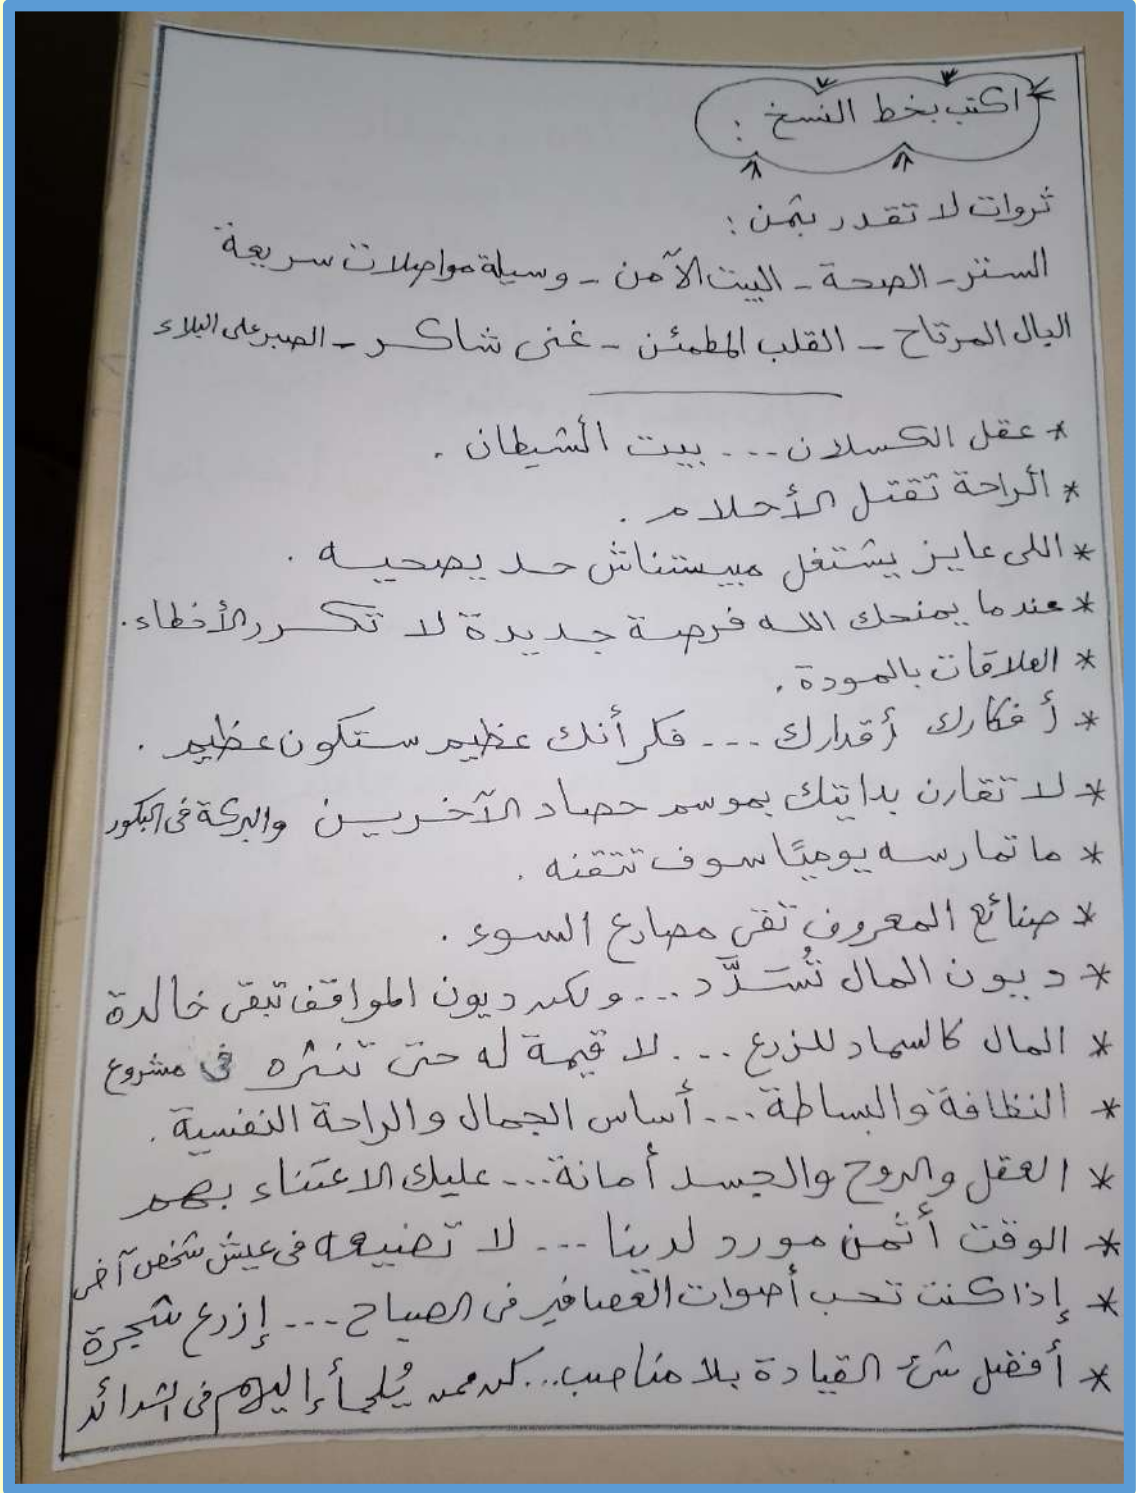 * اكتب بخط النسخ :
ثروات لا تقدر بثمن :
الستر - الصحة - البيت الآمن - وسيلة مواصلات سريعة
البال المرتاح - القلب المطمئن - غنى شاكر - الصبر على البلاء
* عقل الكسلان ... بيت الشيطان .
* الراحة تقتل الأحلام .
* اللى عايز يشتغل مبيستناش حد يصحيه .
* عندما يمنحك الله فرصة جديدة لا تكرر الأخطاء .
* العلاقات بالمودة .
* أفكارك أقدارك ... فكر أنك عظيم ستكون عظيم .
* لا تقارن بدايتك بموسم حصاد الآخرين والبركة فى البكور
* ما تمارسه يوميًا سوف تتقنه .
* صنائع المعروف تقى مصارع السوء .
* ديون المال تُسَدَّد ... ولكن ديون المواقف تبقى خالدة
* المال كالسماد للزرع ... لا قيمة له حتى تنثره فى مشروع
* النظافة والبساطة ... أساس الجمال والراحة النفسية .
* العقل والروح والجسد أمانة ... عليك الاعتناء بهم
* الوقت أثمن مورد لدينا ... لا تضيعه فى عيش شخص آخر
* إذا كنت تحب أصوات العصافير فى الصباح ... إزرع شجرة
* أفضل شئ القيادة بلا مناصب ... كن ممن يُلجأ إليهم فى الشدائد